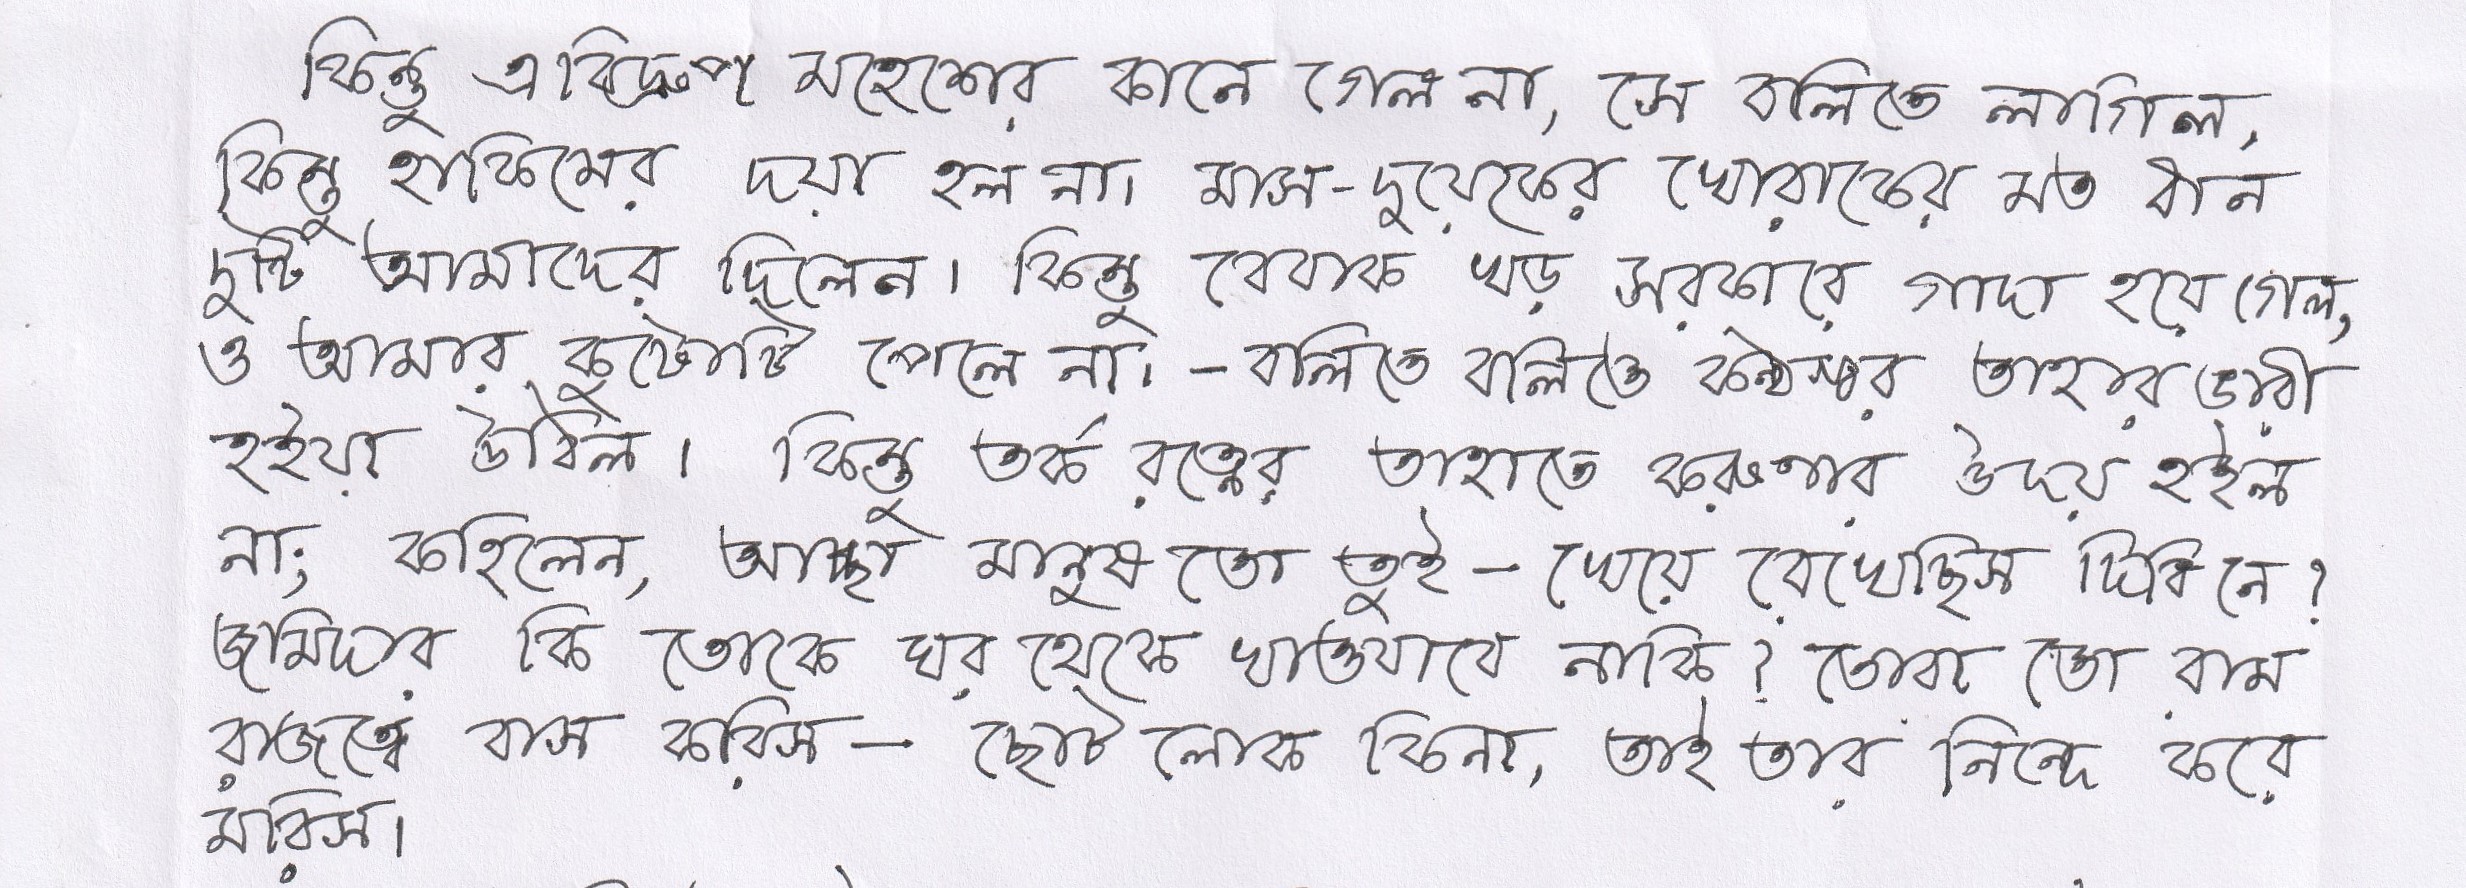 কিন্তু এ বিদ্রূপ মহেশের কানে গেল না, সে বলিতে লাগিল,
কিন্তু হাকিমের দয়া হল না। মাস-দুয়েকের খোরাকের মত ধান
দুটি আমাদের দিলেন। কিন্তু বেবাক খড় সরকারে গাদা হয়ে গেল,
ও আমার কুটোটি পেলে না। - বলিতে বলিতে কন্ঠস্বর তাহার ভারী
হইয়া উঠিল। কিন্তু তর্ক রত্নের তাহাতে করুণার উদয় হইল
না; কহিলেন, আচ্ছা মানুষ তো তুই - খেয়ে রেখেছিস দিবি নে?
জমিদার কি তোকে ঘর থেকে খাওয়াবে নাকি? তোরা তো রাম
রাজত্বে বাস করিস - ছোট লোক কিনা, তাই তার নিন্দে করে
মরিস।